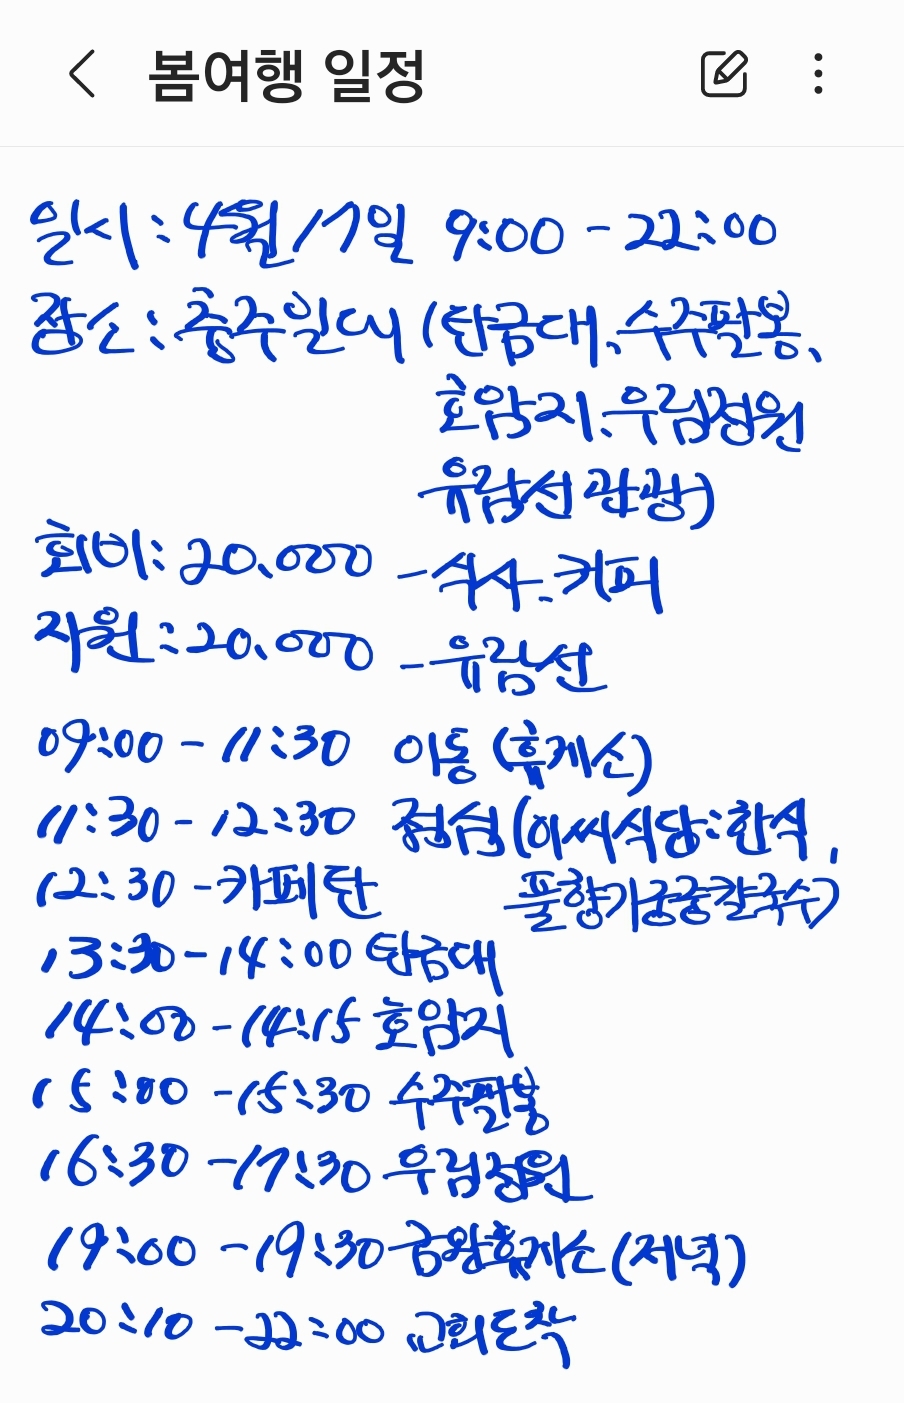 봄여행 일정
일시:4월17일 9:00-22:00
장소:충주일대(탄금대、수주팔봉、
호암지、우림정원
유람선관광)
회비:20、000 -식사、커피
지원:20、000 -유람선
09:00-11:30 이동(휴게소)
11:30-12:30 점심(이씨식당:한식,
12:30-카페탄 풀향기금중칼국수)
13:30-14:00 탄금대
14:00-14:15 호암지
15:00-15:30 수주팔봉
16:30-17:30 우림정원
19:00-19:30 금왕휴게소(저녁)
20:10-22:00 교회도착